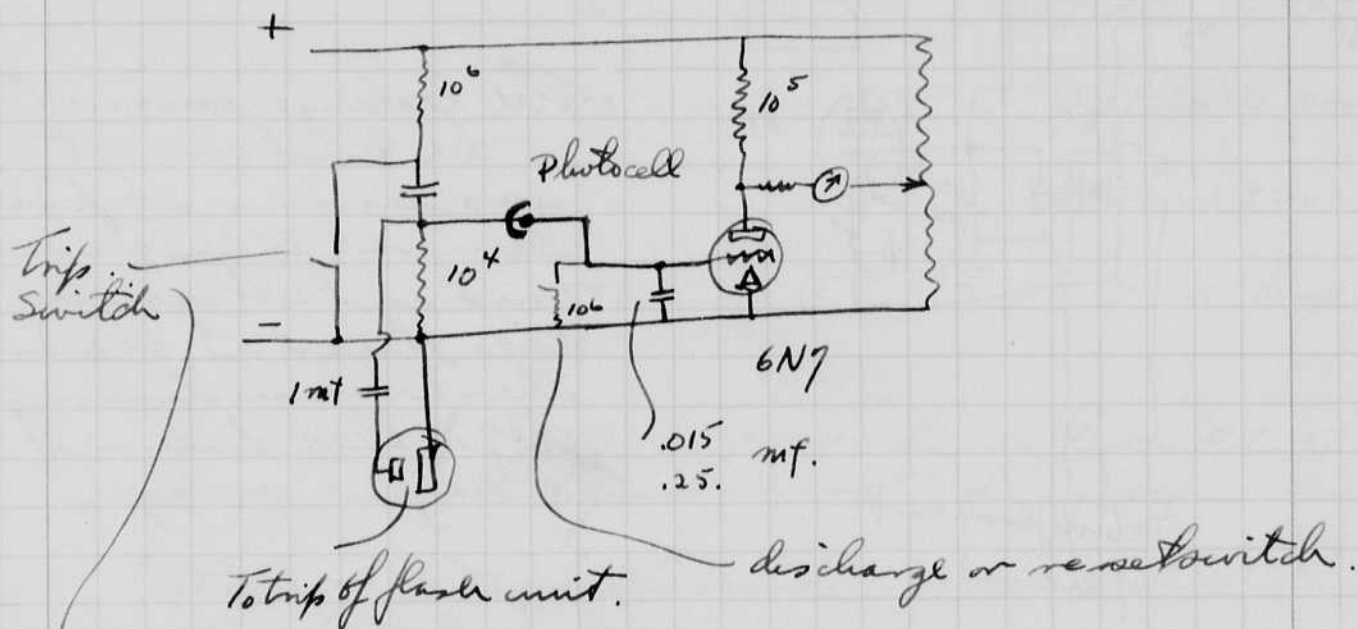 +
10⁶
10⁵
Photocell
Trip
Switch
10⁴
10⁶
-
6N7
1 mf
.015
.25. mf.
To trip of flash unit.
discharge or reset switch.